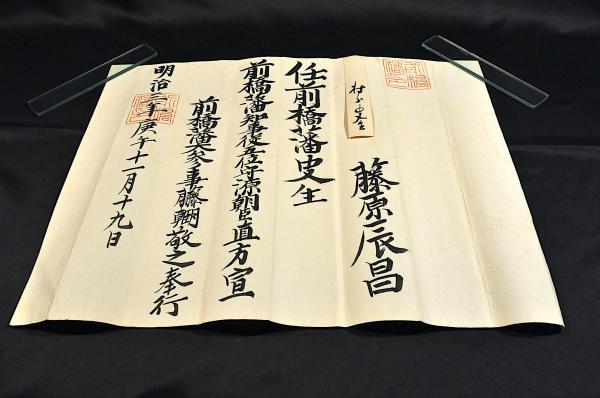 藤原辰昌
任前橋藩史生
前橋藩知事従五位守源朝臣直方宣
前橋藩大参事藤原敬之奉行
明治三年庚午十一月十九日